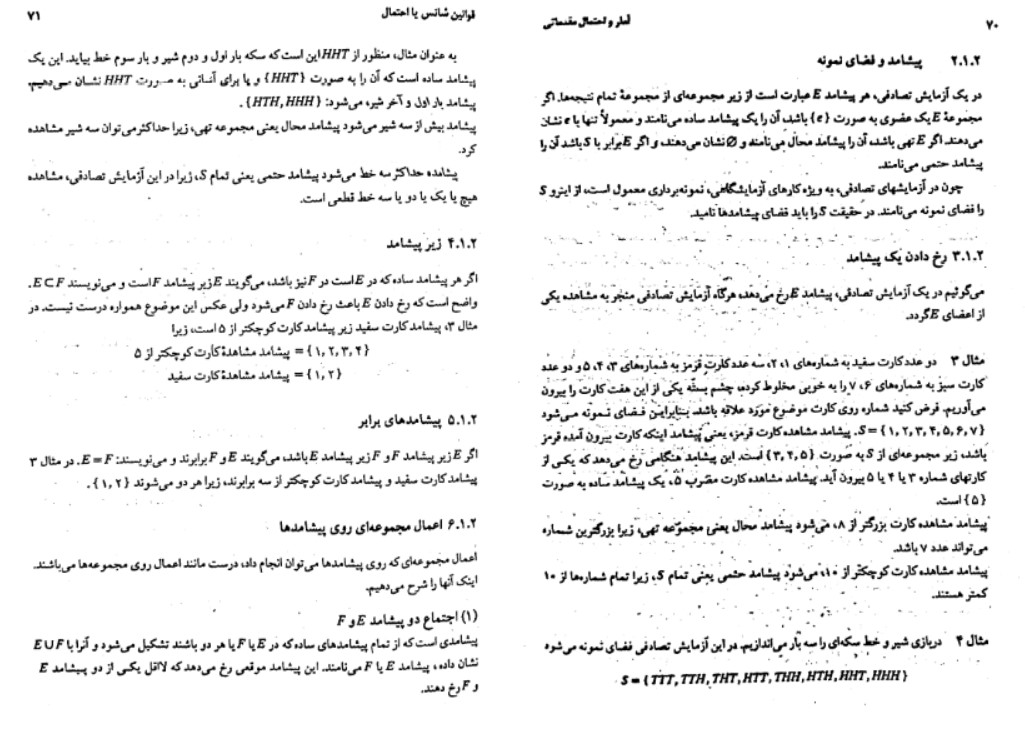 ۷۰
آمار و احتمال مقدماتی
۲.۱.۲ پیشامد و فضای نمونه
در یک آزمایش تصادفی، هر پیشامد E عبارت است از زیر مجموعه‌ای از مجموعهٔ تمام نتیجه‌ها. اگر
مجموعهٔ E یک عضوی به صورت {e} باشد، آن را یک پیشامد ساده می‌نامند و معمولاً تنها با e نشان
می‌دهند. اگر E تهی باشد، آن را پیشامد محال می‌نامند و Ø نشان می‌دهند، و اگر E برابر با S باشد آن را
پیشامد حتمی می‌نامند.
چون در آزمایشهای تصادفی، به ویژه کارهای آزمایشگاهی، نمونه‌برداری معمول است، از اینرو S
را فضای نمونه می‌نامند. در حقیقت S را باید فضای پیشامدها نامید.
۳.۱.۲ رخ دادن یک پیشامد
می‌گوئیم در یک آزمایش تصادفی، پیشامد E رخ می‌دهد، هرگاه آزمایش تصادفی منجر به مشاهده یکی
از اعضای E گردد.
مثال ۳ دو عدد کارت سفید به شماره‌های ۱، ۲، سه عدد کارت قرمز به شماره‌های ۳، ۴، ۵ و دو عدد
کارت سبز به شماره‌های ۶، ۷ را به خوبی مخلوط کرده، چشم بسته یکی از این هفت کارت را بیرون
می‌آوریم. فرض کنید شماره روی کارت موضوع مورد علاقه باشد. بنابراین فضای نمونه می‌شود
S = {۱, ۲, ۳, ۴, ۵, ۶, ۷}. پیشامد مشاهده کارت قرمز، یعنی پیشامد اینکه کارت بیرون آمده قرمز
باشد، زیر مجموعه‌ای از S به صورت {۳, ۴, ۵} است. این پیشامد هنگامی رخ می‌دهد که یکی از
کارتهای شماره ۳ یا ۴ یا ۵ بیرون آید. پیشامد مشاهده کارت مضرب ۵، یک پیشامد ساده به صورت
{۵} است.
پیشامد مشاهده کارت بزرگتر از ۸، می‌شود پیشامد محال یعنی مجموعه تهی، زیرا بزرگترین شماره
می‌تواند عدد ۷ باشد.
پیشامد مشاهده کارت کوچکتر از ۱۰، می‌شود پیشامد حتمی یعنی تمام S، زیرا تمام شماره‌ها از ۱۰
کمتر هستند.
مثال ۴ در بازی شیر و خط سکه‌ای را سه بار می‌اندازیم. در این آزمایش تصادفی فضای نمونه می‌شود
S = {TTT, TTH, THT, HTT, THH, HTH, HHT, HHH}
قوانین شانس یا احتمال
۷۱
به عنوان مثال، منظور از HHT این است که سکه بار اول و دوم شیر و بار سوم خط بیاید. این یک
پیشامد ساده است که آن را به صورت {HHT} و یا برای آسانی به صورت HHT نشان می‌دهیم.
پیشامد بار اول و آخر شیر، می‌شود: {HTH, HHH}.
پیشامد بیش از سه شیر می‌شود پیشامد محال یعنی مجموعه تهی، زیرا حداکثر می‌توان سه شیر مشاهده
کرد.
پیشامده حداکثر سه خط می‌شود پیشامد حتمی یعنی تمام S، زیرا در این آزمایش تصادفی، مشاهده
هیچ یا یک یا دو یا سه خط قطعی است.
۴.۱.۲ زیر پیشامد
اگر هر پیشامد ساده که در E است در F نیز باشد، می‌گویند E زیر پیشامد F است و می‌نویسند E⊂F.
واضح است که رخ دادن E باعث رخ دادن F می‌شود ولی عکس این موضوع همواره درست نیست. در
مثال ۳، پیشامد کارت سفید زیر پیشامد کارت کوچکتر از ۵ است، زیرا
{۱, ۲, ۳, ۴} = پیشامد مشاهدهٔ کارت کوچکتر از ۵
{۱, ۲} = پیشامد مشاهده کارت سفید
۵.۱.۲ پیشامدهای برابر
اگر E زیر پیشامد F و F زیر پیشامد E باشد، می‌گویند E و F برابرند و می‌نویسند: E = F. در مثال ۳
پیشامد کارت سفید و پیشامد کارت کوچکتر از سه برابرند، زیرا هر دو می‌شوند {۱, ۲}.
۶.۱.۲ اعمال مجموعه‌ای روی پیشامدها
اعمال مجموعه‌ای که روی پیشامدها می‌توان انجام داد، درست مانند اعمال روی مجموعه‌ها می‌باشند.
اینک آنها را شرح می‌دهیم.
(۱) اجتماع دو پیشامد E و F
پیشامدی است که از تمام پیشامدهای ساده که در E یا F یا هر دو باشند تشکیل می‌شود و آنرا با E∪F
نشان داده، پیشامد E یا F می‌نامند. این پیشامد موقعی رخ می‌دهد که لااقل یکی از دو پیشامد E
و F رخ دهند.